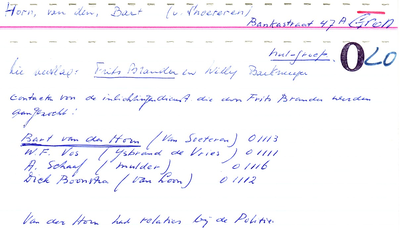 Horn, van den, Bart (v. Soeteren)
Bankastraat 47A Gron
Hulpgroep. OLO
Zie verslag: Frits Brander en Willy Barkmeyer
Contacten van de inlichtingendienst die door Frits Brander werden
aangezocht:
Bart van den Horn (van Soeteren) 01113
W.F. Vos (Ysbrand de Vries) 01111
A. Schaaf (Mulder) 01116
Dick Boonstra (van Loon) 01112
Van der Horn had relaties bij de Politie